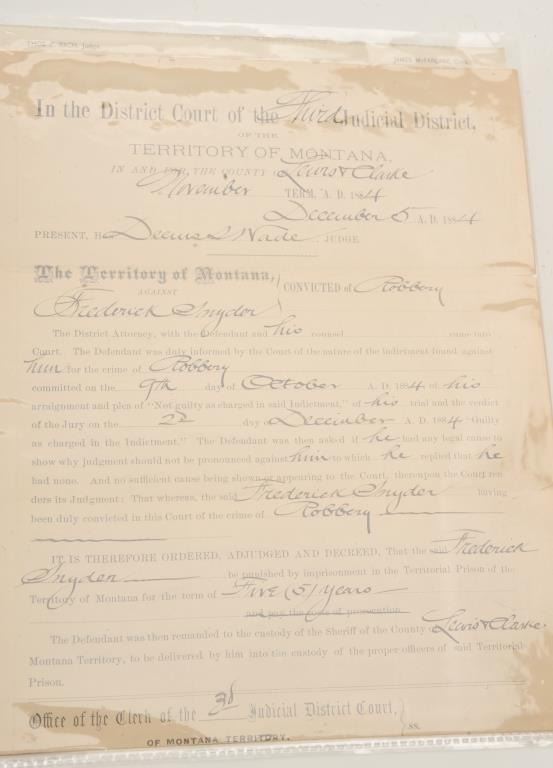 JAMES McFARLANE, Clerk
In the District Court of the Third Judicial District,
OF THE
TERRITORY OF MONTANA,
IN AND FOR THE COUNTY OF Lewis & Clarke
November TERM, A. D. 1884
December 5 A. D. 1884
PRESENT, H Decius S Wade, JUDGE
The Territory of Montana,
AGAINST
CONVICTED of Robbery
Frederick Snyder
The District Attorney, with the Defendant and his counsel came into
Court. The Defendant was duly informed by the Court of the nature of the indictment found against
him for the crime of Robbery
committed on the 9th day of October A. D. 1884 of his
arraignment and plea of "Not guilty as charged in said Indictment," of his trial and the verdict
of the Jury on the 2d day December A. D. 1884 "Guilty
as charged in the Indictment." The Defendant was then asked if he had any legal cause to
show why Judgment should not be pronounced against him to which he replied that he
had none. And no sufficient cause being shown or appearing to the Court, thereupon the Court ren
ders its Judgment: That whereas, the said Frederick Snyder having
been duly convicted in this Court of the crime of Robbery
IT IS THEREFORE ORDERED, ADJUDGED AND DECREED, That the said Frederick
Snyder be punished by imprisonment in the Territorial Prison of the
Territory of Montana for the term of Five (5) years
and pay the costs of prosecution.
The Defendant was then remanded to the custody of the Sheriff of the County Lewis & Clarke
Montana Territory, to be delivered by him into the custody of the proper officers of said Territorial
Prison.
Office of the Clerk of the 3d Judicial District Court,
OF MONTANA TERRITORY.
ss.